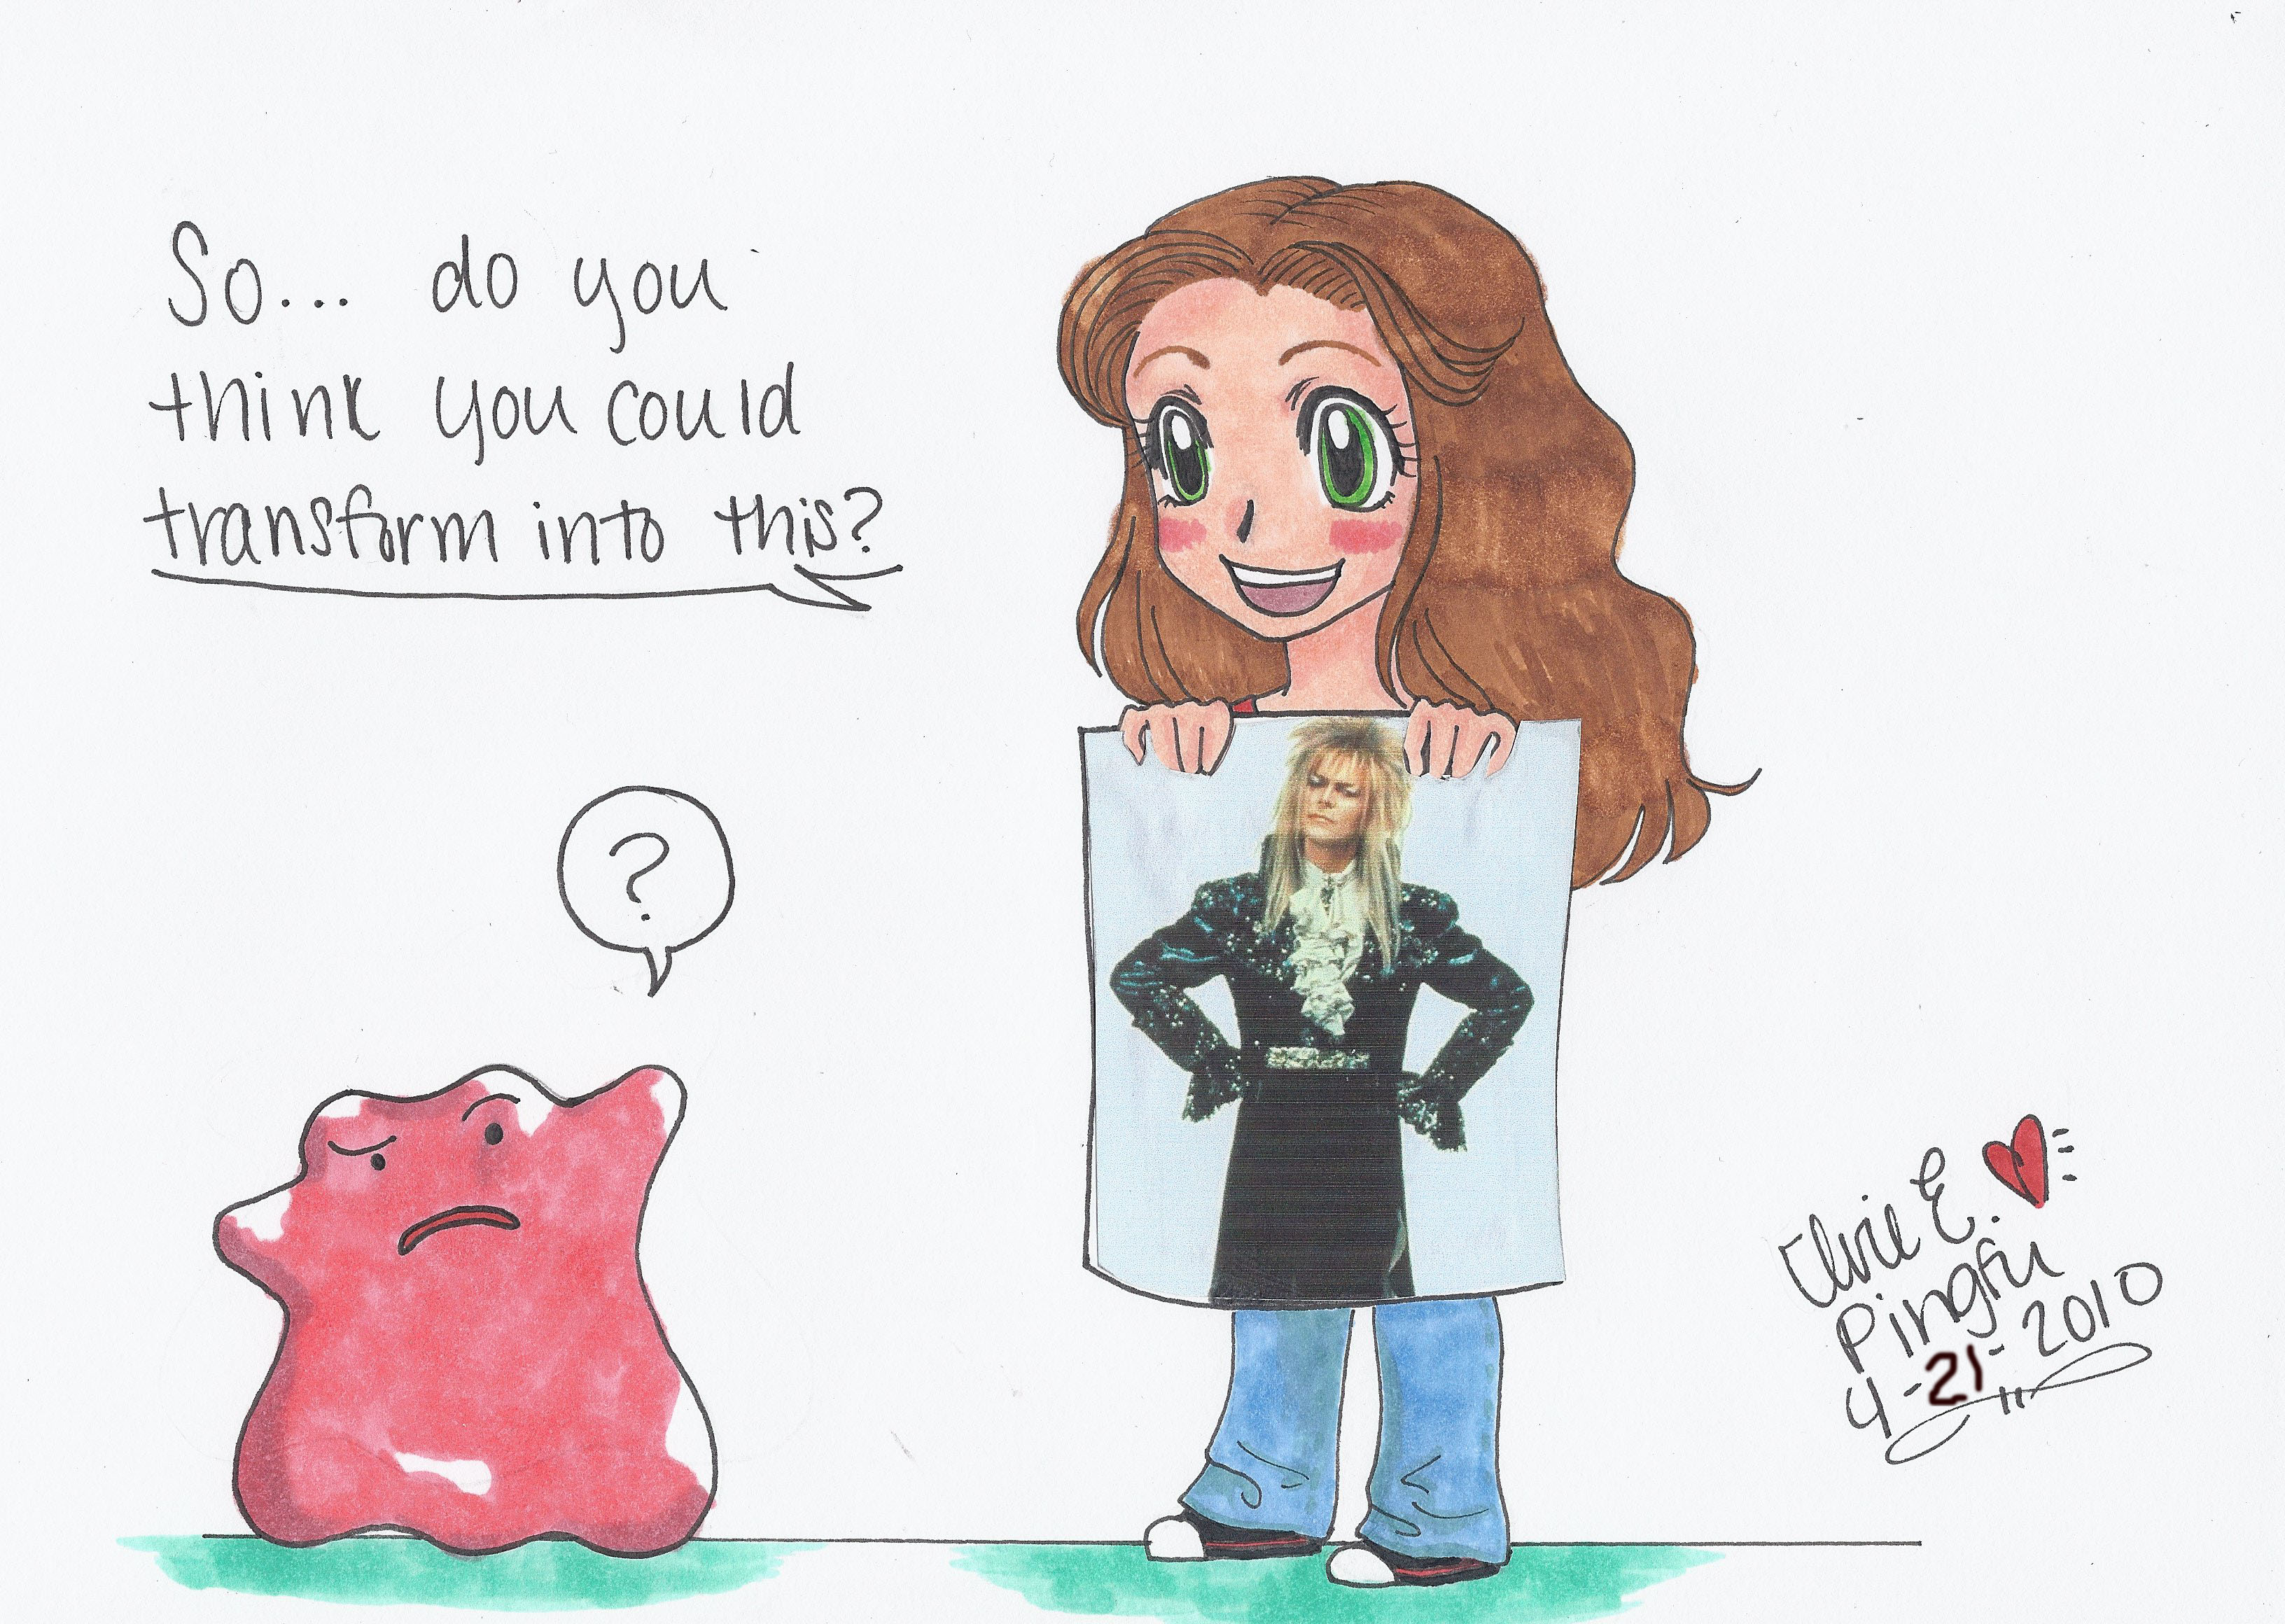 So... do you
think you could
transform into this?
?
Elvie E.
Pingfu
4-21-2010